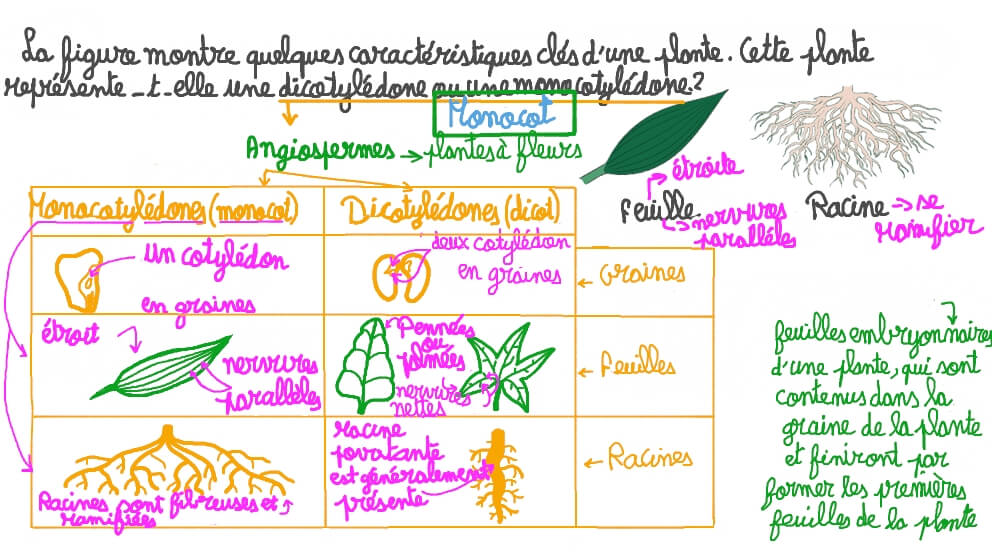 La figure montre quelques caractéristiques clés d'une plante. Cette plante
représente-t-elle une dicotylédone ou une monocotylédone?
Monocot
Angiospermes → plantes à fleurs
étroite
Feuille
nervures
parallèles
Racine → se
ramifier
Monocotylédones (monocot)
Dicotylédones (dicot)
un cotylédon
en graines
deux cotylédon
en graines
← Graines
étroit
nervures
parallèles
Pennées
ou
palmées
nervures
nettes
← Feuilles
Racines sont fibreuses et
ramifiées
racine
pivotante
est généralement
présente
← Racines
feuilles embryonnaires
d'une plante, qui sont
contenus dans la
graine de la plante
et finiront par
former les premières
feuilles de la plante